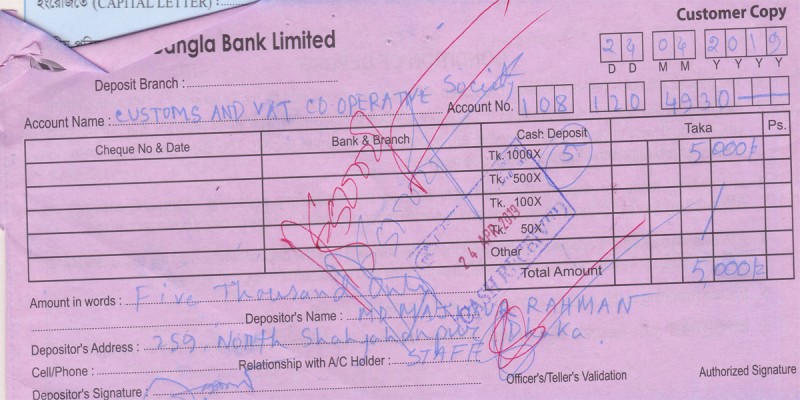 ইংরেজিতে (CAPITAL LETTER) :
Customer Copy
Bangla Bank Limited
24 04 2019
D D M M Y Y Y Y
Deposit Branch :
Account Name : CUSTOMS AND VAT CO OPERATIVE Society
Account No. 108 120 4930
Cheque No & Date Bank & Branch Cash Deposit Taka Ps.
Tk. 1000X 5 5,000/=
Tk. 500X
Tk. 100X
Tk. 50X
24 APR 2019
Other
Total Amount 5,000/=
Amount in words : Five Thousand Only
Depositor's Name : RAHMAN
Depositor's Address : 259, North Shahjahanpur, Dhaka.
Cell/Phone : Relationship with A/C Holder : STAFF
Depositor's Signature :
Officer's/Teller's Validation
Authorized Signature